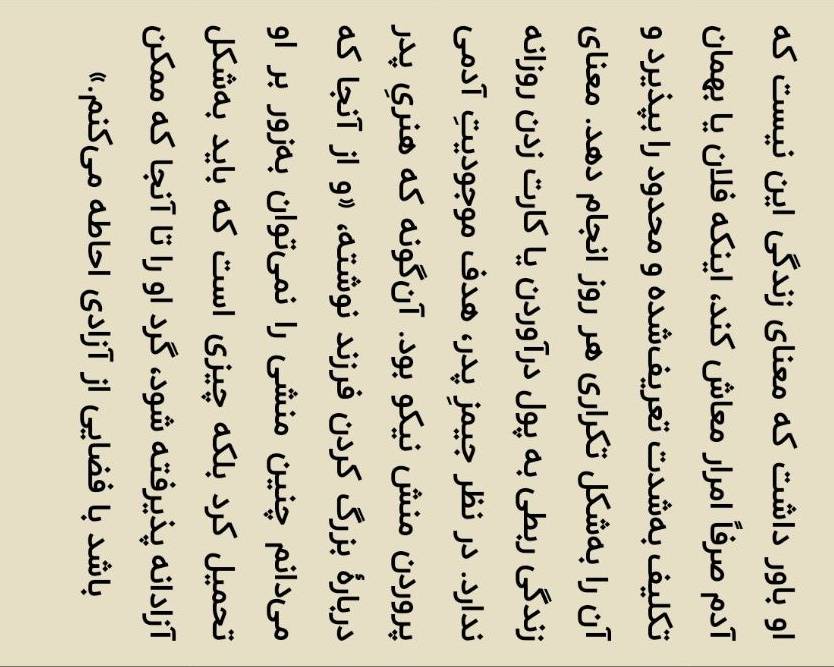 او باور داشت که معنای زندگی این نیست که
آدم صرفاً امرار معاش کند، اینکه فلان یا بهمان
تکلیف به‌شدت تعریف‌شده و محدود را بپذیرد و
آن را به‌شکل تکراری هر روز انجام دهد. معنای
زندگی ربطی به پول درآوردن یا کارت زدن روزانه
ندارد. در نظر جیمزِ پدر، هدف موجودیتِ آدمی
پروردن منش نیکو بود. آن‌گونه که هنریِ پدر
دربارهٔ بزرگ کردن فرزند نوشته، «و از آنجا که
می‌دانم چنین منشی را نمی‌توان به‌زور بر او
تحمیل کرد بلکه چیزی است که باید به‌شکل
آزادانه پذیرفته شود، گرد او را تا آنجا که ممکن
باشد با فضایی از آزادی احاطه می‌کنم.»